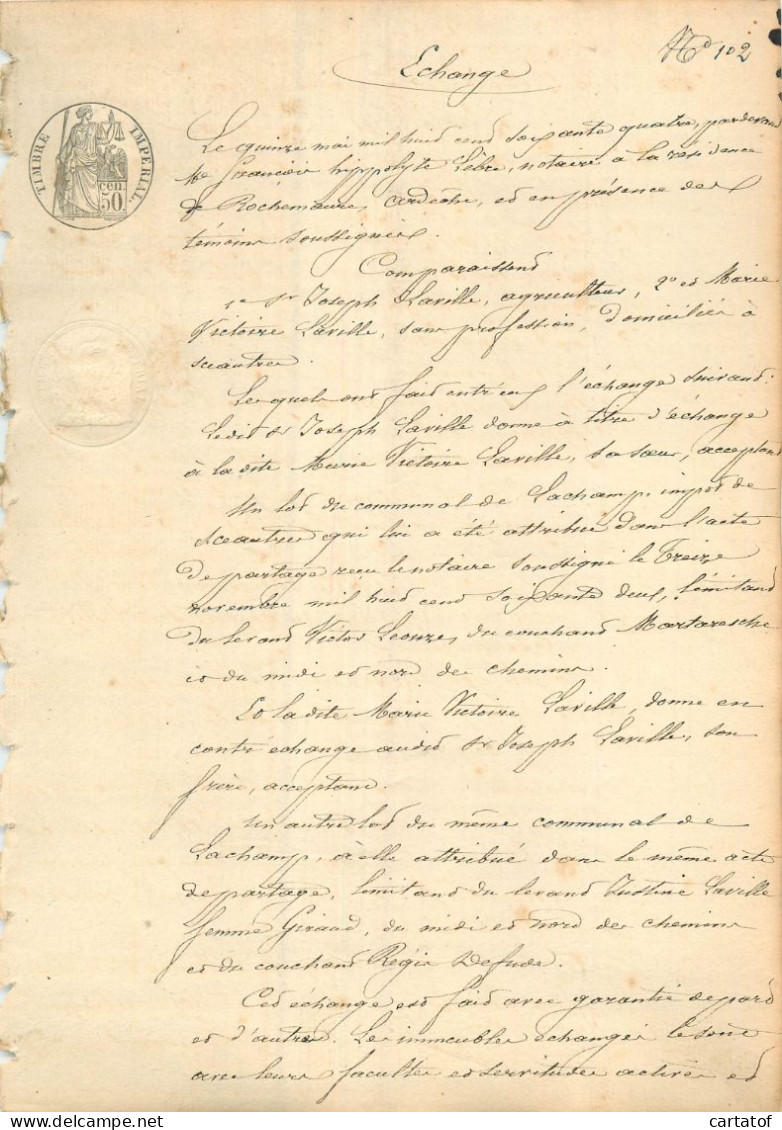 No 102
Echange
TIMBRE IMPERIAL
50 cen.
Le quinze mai mil huit cent soixante quatre, pardevant
Me François hippolyte Lèbre, notaire à la résidence
de Rochemaure, ardèche, et en présence des
témoins soussignés.
Comparaissent
1º Sr Joseph Laville, agriculteur, 2º et Marie
Victoire Laville, sans profession, domiciliés à
sceautres.
Lesquels ont fait entr'eux l'échange suivant:
Ledit Sr Joseph Laville donne à titre d'échange
à la dite Marie Victoire Laville, sa sœur, acceptant
Un lot du communal de Lachamp, de
Sceautres qui lui a été attribué dans l'acte
de partage reçu le notaire soussigné le Treize
novembre mil huit cent soixante deux, limitant
du levant Victor Leouze, du couchant
et du midi et nord des chemins.
Et la dite Marie Victoire Laville, donne en
contr'échange audit Sr Joseph Laville, son
frère, acceptant.
Un autre lot du même communal de
Lachamp, à elle attribué dans le même acte
de partage, limitant du levant Justine Laville
femme Giraud, du midi et nord des chemins
et du couchant Régis
Cet échange est fait avec garantie de part
et d'autre. Les immeubles échangés le sont
avec leurs facultés et servitudes actives et
www.delcampe.net
cartatof